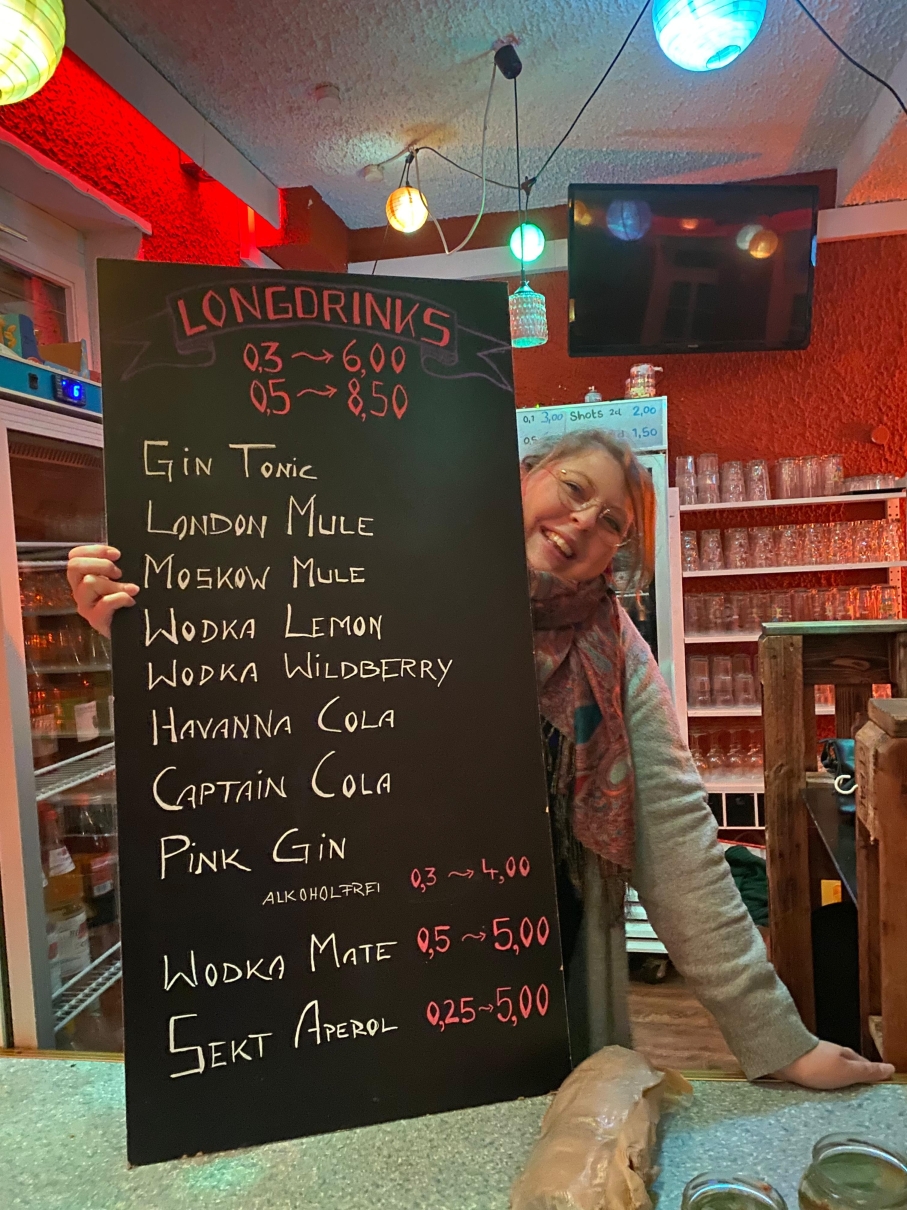 LONGDRINKS
0,3 → 6,00
0,5 → 8,50
GIN TONIC
LONDON MULE
MOSKOW MULE
WODKA LEMON
WODKA WILDBERRY
HAVANNA COLA
CAPTAIN COLA
PINK GIN
ALKOHOLFREI 0,3 → 4,00
WODKA MATE 0,5 → 5,00
SEKT APEROL 0,25 → 5,00
3,00 Shots 2cl 2,00
1,50
6